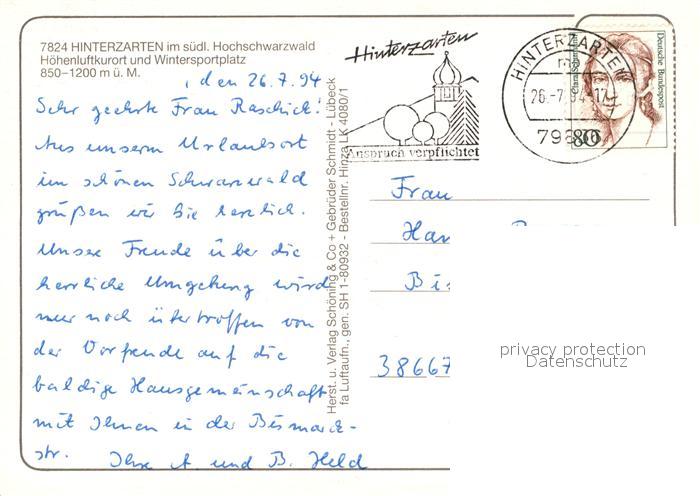 7824 HINTERZARTEN im südl. Hochschwarzwald
Höhenluftkurort und Wintersportplatz
850-1200 m ü. M.
, den 26.7.94
Sehr geehrte Frau Raschick!
Aus unserem Urlaubsort
im schönen Schwarzwald
grüßen wir Sie herzlich.
Unsere Freude über die
herrliche Umgebung wird
nur noch übertroffen von
der Vorfreude auf die
baldige Hausgemeinschaft
mit Ihnen in der Bismarck-
str. Ihre A und B. Held
Herst. u. Verlag Schöning & Co + Gebrüder Schmidt - Lübeck
fa Luftaufn., gen. SH 1-80932 - Bestellnr. Hinza LK 4080/1
Hinterzarten
Anspruch verpflichtet
HINTERZARTEN
26.-7.94-17
Deutsche Bundespost
80
Frau
Han
Bi
38667
privacy protection
Datenschutz